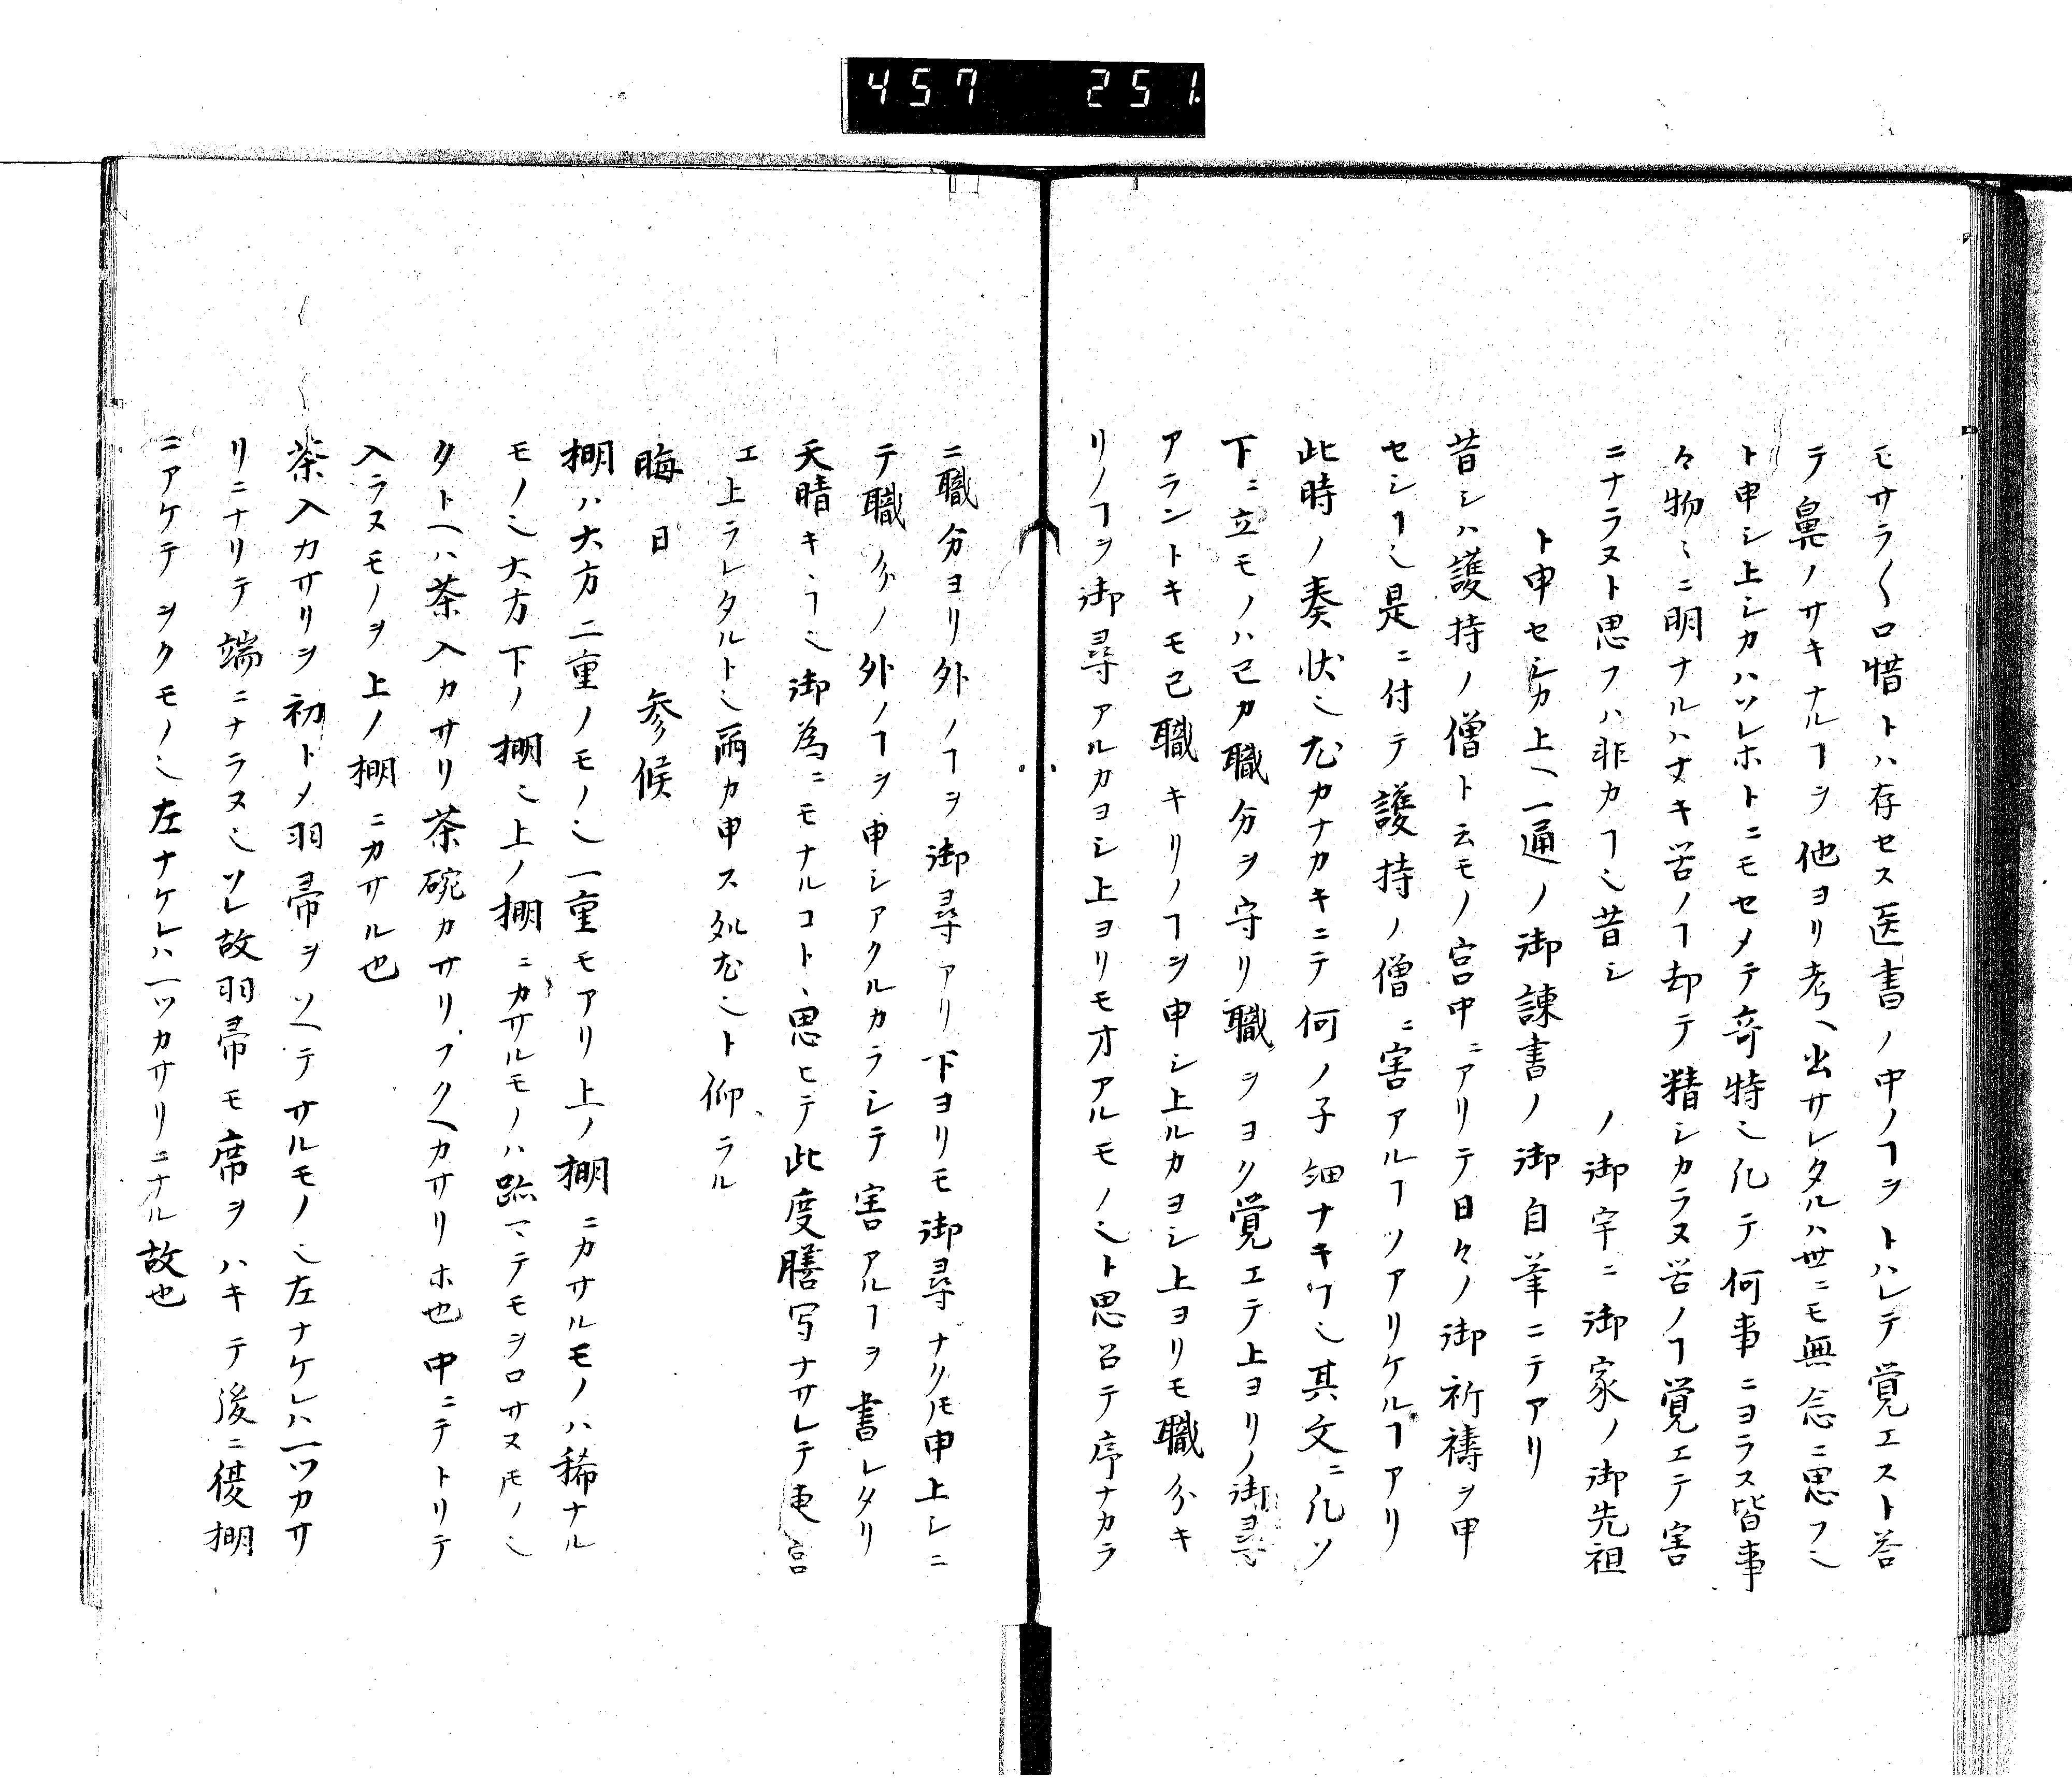 457 251.
モサラ〱口惜トハ存セス医書ノ中ノヿヲトハレテ覚エスト答
テ鼻ノサキナルヿヲ他ヨリ考ヘ出サレタルハ世ニモ無念ニ思フ〻
ト申シ上シカハソレホトニモセメテ奇特〻凡テ何事ニヨラス皆事
々物〻ニ明ナルハナキ筈ノヿ却テ精シカラヌ筈ノヿ覚エテ害
ニナラヌト思フハ非カヿ〻昔シ　ノ御宇ニ御家ノ御先祖
ト申セシカ上ヘ一通ノ御諫書ノ御自筆ニテアリ
昔シハ護持ノ僧ト云モノ宮中ニアリテ日々ノ御祈禱ヲ申
セシヿ〻是ニ付テ護持ノ僧ニ害アルヿソアリケルヿアリ
此時ノ奏状〻尤カナカキニテ何ノ子細ナキヿ〻其文ニ凡ソ
下ニ立モノハ己カ職分ヲ守リ職ヲヨク覚エテ上ヨリノ御尋
アラントキモ己職キリノヿヲ申シ上ルカヨシ上ヨリモ職分キ
リノヿヲ御尋アルカヨシ上ヨリモオアルモノ〻ト思召テ序ナカラ
ニ職分ヨリ外ノヿヲ御尋アリ下ヨリモ御尋ナクトモ申上シニ
テ職分ノ外ノヿヲ申シアクルカラシテ害アルヿヲ書レタリ
天晴キ〻ヿ〻御為ニモナルコト、思ヒテ此度謄写ナサレテ東宮
エ上ラレタルト〻雨カ申ス処尤〻ト仰ラル
晦日　参候
棚ハ大方二重ノモノ〻一重モアリ上ノ棚ニカサルモノハ稀ナル
モノ〻大方下ノ棚〻上ノ棚ニカサルモノハ跡マテモヲロサヌモノ〻
タトヘハ茶入カサリ茶碗カサリフクヘカサリホ也中ニテトリテ
入ラヌモノヲ上ノ棚ニカサル也
茶入カサリヲ初トメ羽帚ヲソヘテサルモノ〻左ナケレハ一ツカサ
リニナリテ端ニナラヌ〻ソレ故羽帚モ席ヲハキテ後ニ復棚
ニアケテヲクモノ〻左ナケレハ一ツカサリニナル故也